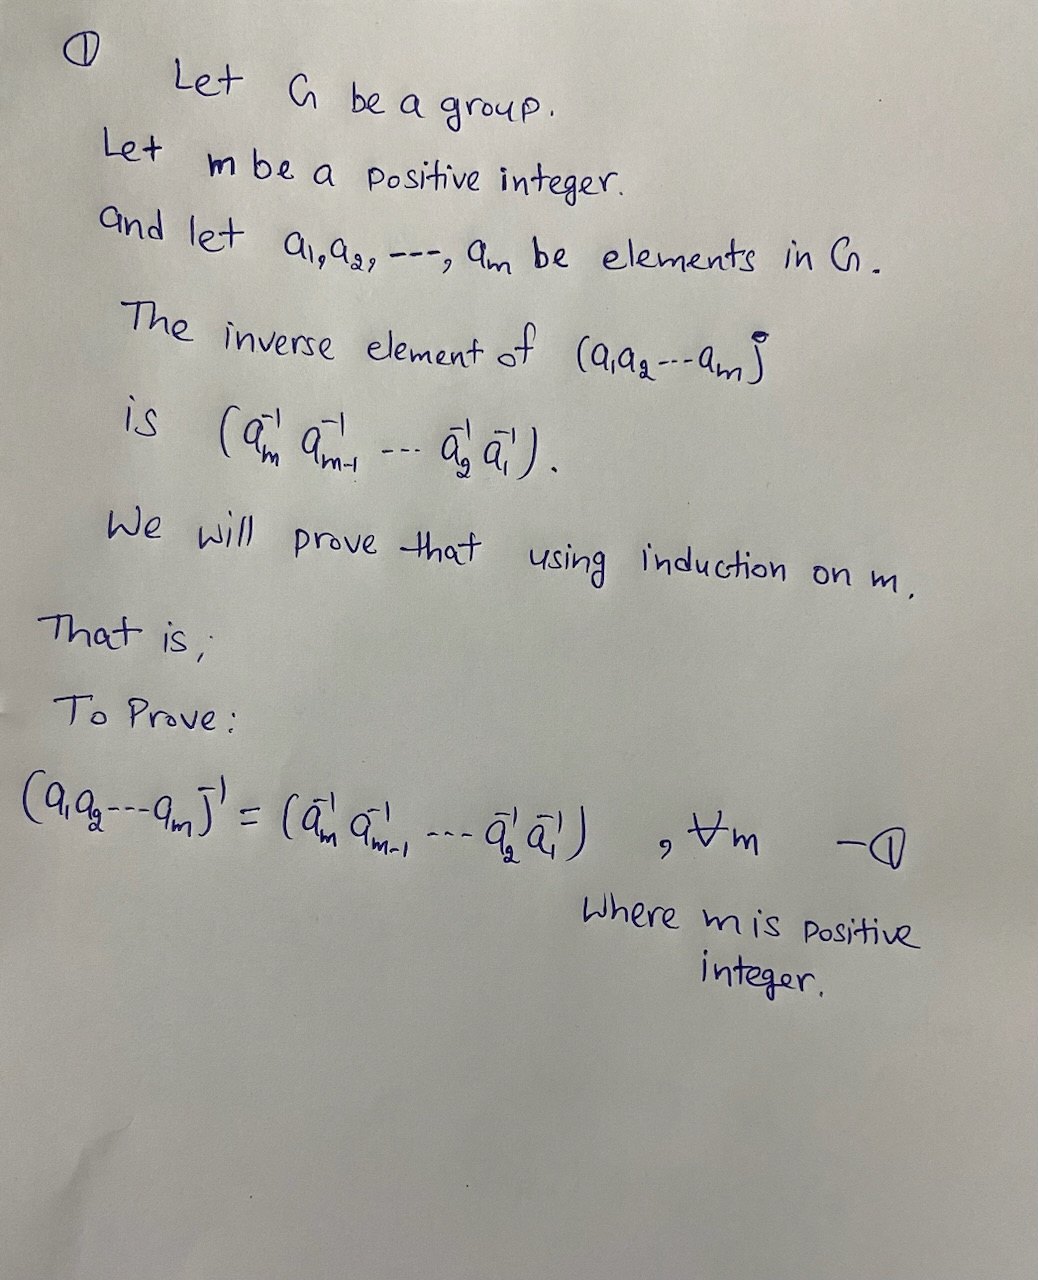 ①
Let G be a group.
Let m be a positive integer.
and let a₁, a₂, ---, aₘ be elements in G.
The inverse element of (a₁a₂---aₘ)
is (aₘ⁻¹ aₘ₋₁⁻¹ --- a₂⁻¹ a₁⁻¹).
We will prove that using induction on m.
That is,
To Prove:
(a₁a₂---aₘ)⁻¹ = (aₘ⁻¹ aₘ₋₁⁻¹ --- a₂⁻¹ a₁⁻¹) , ∀m —①
where m is positive
integer.